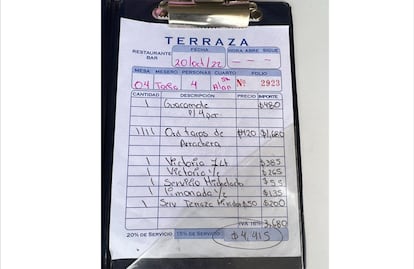 TERRAZA
RESTAURANTE BAR
FECHA HORA ABRE SIGUE
20/oct/22 - - -
MESA MESERO PERSONAS CUARTO FOLIO
04 4 Nº 2923
CANTIDAD DESCRIPCIÓN PRECIO IMPORTE
1 Guacamole $480
P/4 per
1111 Ord tacos de $420 $1,680
Arrachera
1 Victoria $385
1 Victoria $265
1 Servicio Michelado $55
1 Limonada $135
1 Serv Terraza $50 $200
IVA 16% 3,680
20% DE SERVICIO 15% DE SERVICIO $4,415